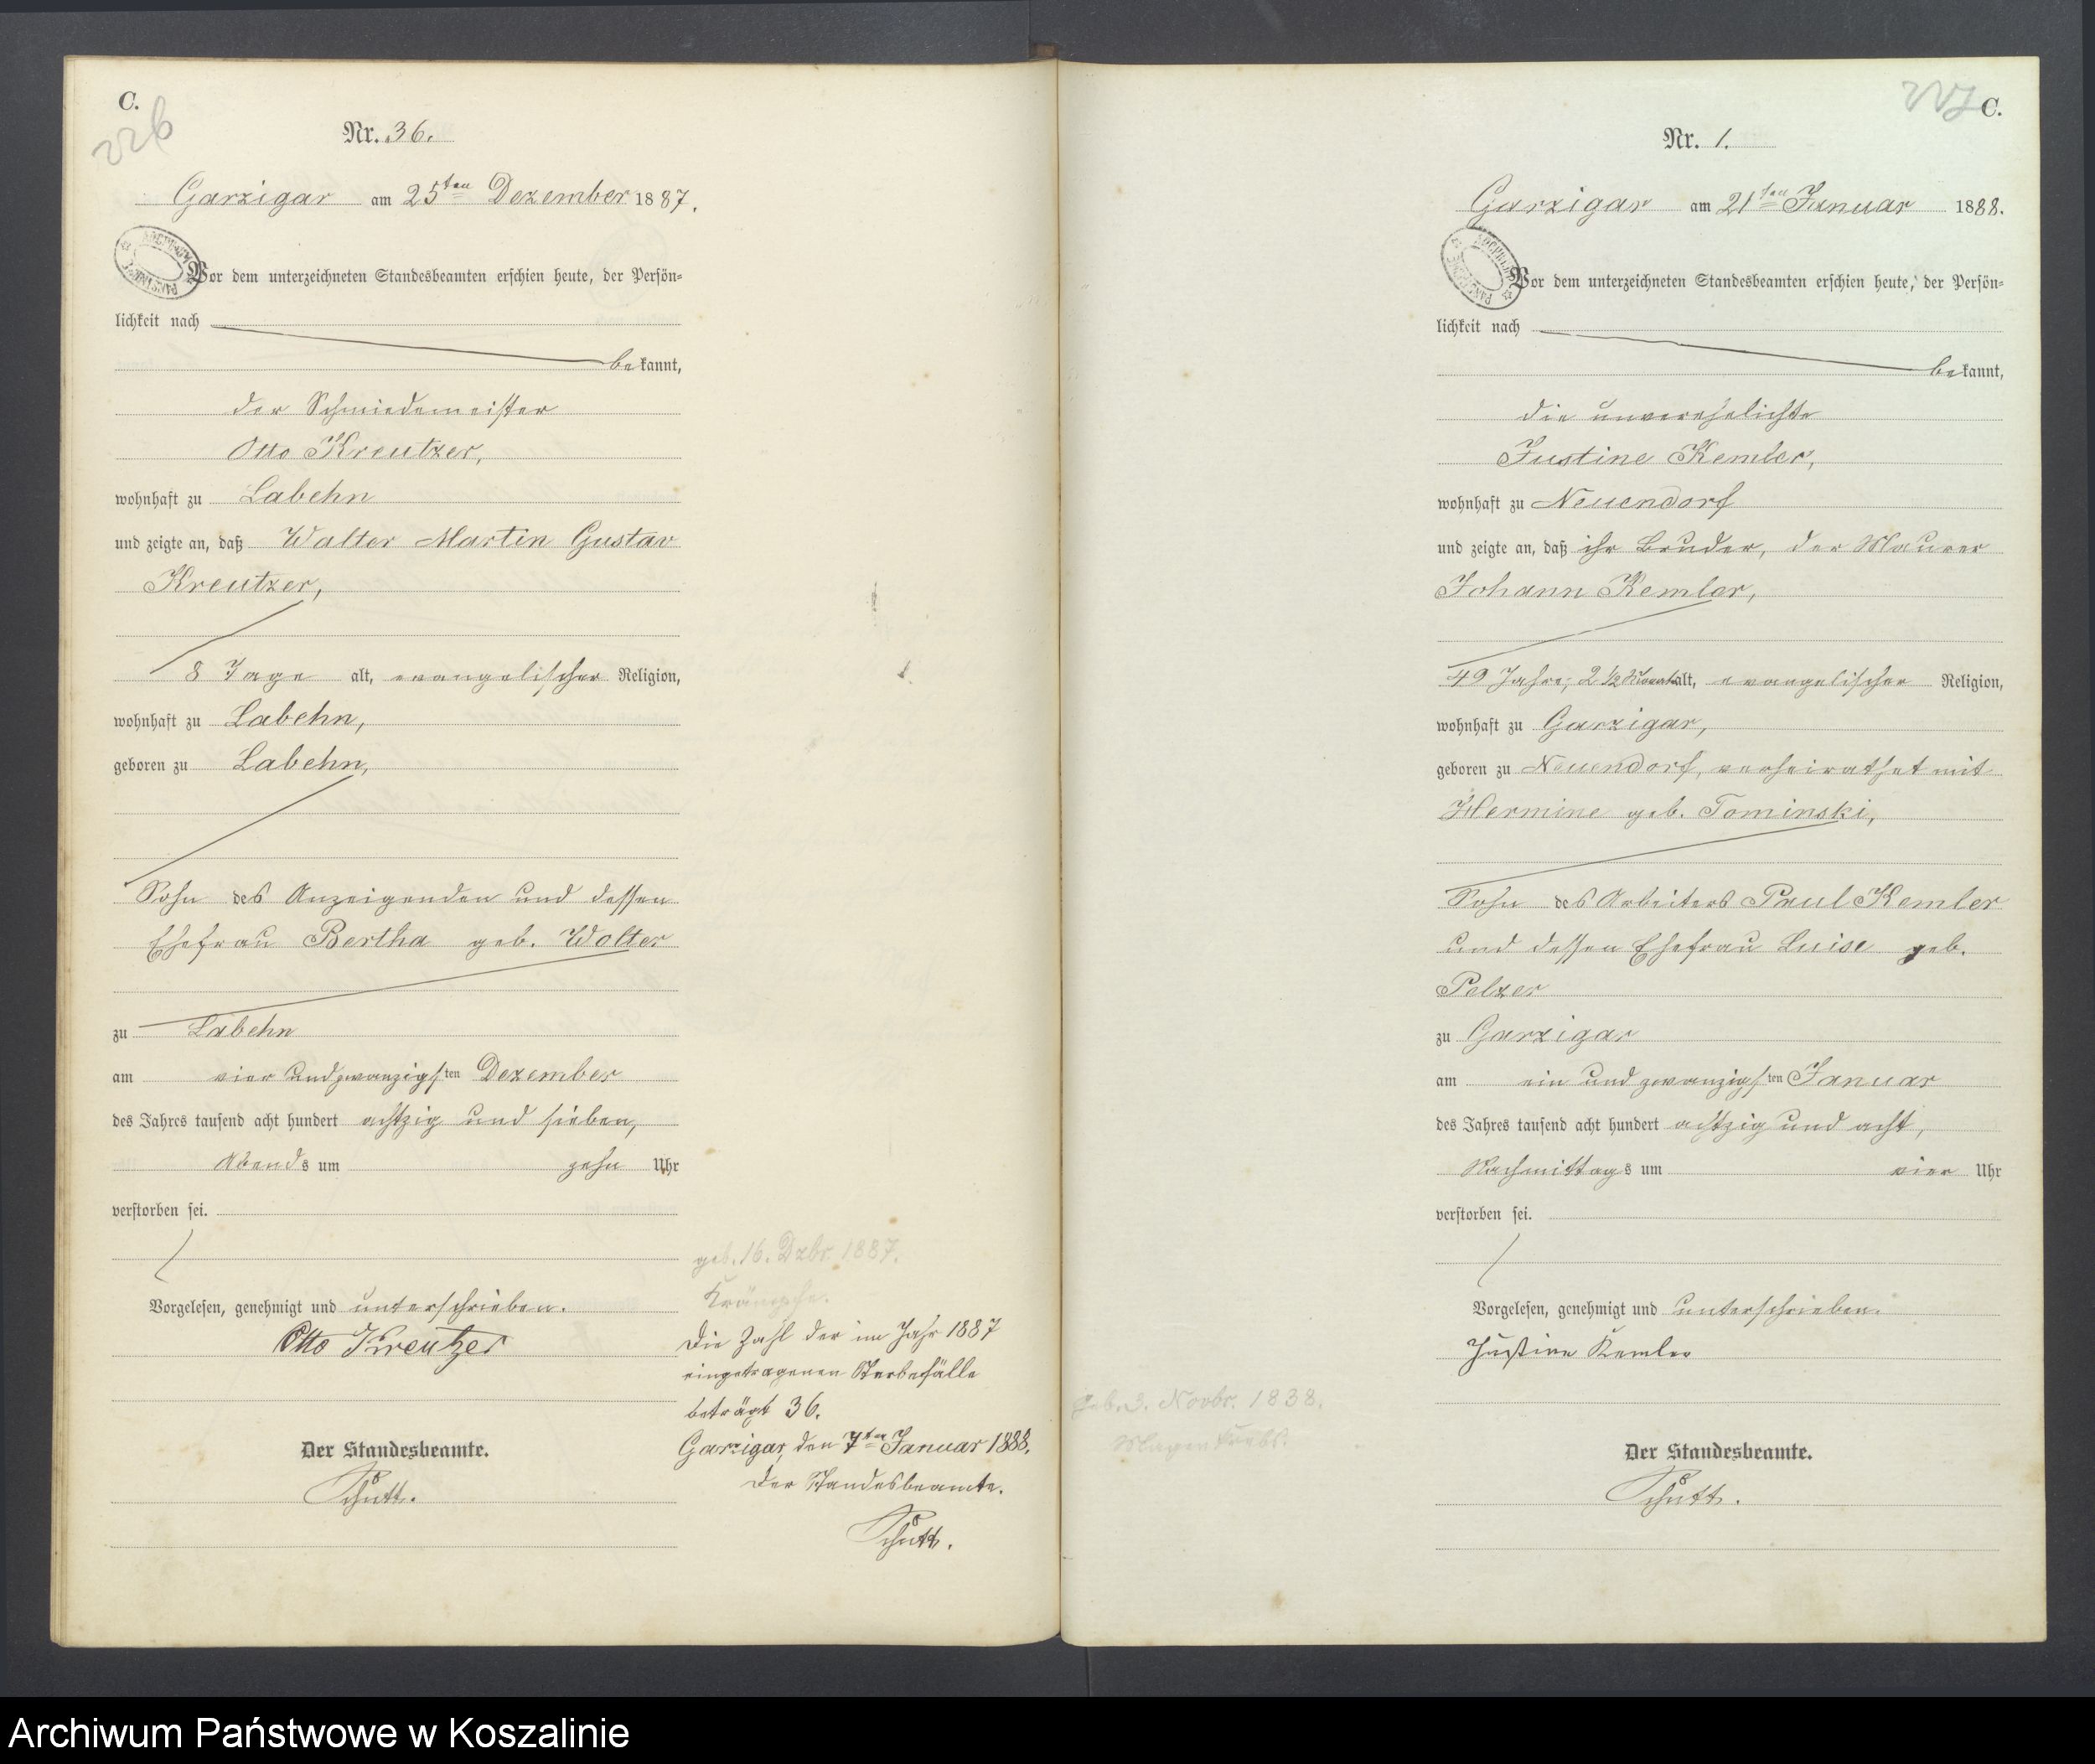 C.
226
Nr. 36.
Garzigar am 25ten Dezember 1887.
Vor dem unterzeichneten Standesbeamten erschien heute, der Persön-
lichkeit nach
bekannt,
der Schmiedemeister
Otto Kreutzer,
wohnhaft zu Labehn
und zeigte an, daß Walter Martin Gustav
Kreutzer,
8 Tage alt, evangelischer Religion,
wohnhaft zu Labehn,
geboren zu Labehn,
Sohn des Anzeigenden und dessen
Ehefrau Bertha geb. Wolter
zu Labehn
am vier und zwanzigsten Dezember
des Jahres tausend acht hundert achtzig und sieben,
Abends um zehn Uhr
verstorben sei.
Vorgelesen, genehmigt und unterschrieben.
Otto Kreutzer
Der Standesbeamte.
Schütt.
geb. 16. Dzbr. 1887.
Krämpfe.
Die Zahl der im Jahr 1887
eingetragenen Sterbefälle
beträgt 36.
Garzigar, den 7ten Januar 1888.
Der Standesbeamte.
Schütt.
227
C.
Nr. 1.
Garzigar am 21ten Januar 1888.
Vor dem unterzeichneten Standesbeamten erschien heute, der Persön-
lichkeit nach
bekannt,
die unverehelichte
Justine Kemler,
wohnhaft zu Neuendorf
und zeigte an, daß ihr Bruder, der Maurer
Johann Kemler,
49 Jahre, 2 1/2 Monat alt, evangelischer Religion,
wohnhaft zu Garzigar,
geboren zu Neuendorf, verheirathet mit
Hermine geb. Tominski,
Sohn des Arbeiters Paul Kemler
und dessen Ehefrau Luise geb.
Pelzer
zu Garzigar
am ein und zwanzigsten Januar
des Jahres tausend acht hundert achtzig und acht,
Nachmittags um vier Uhr
verstorben sei.
Vorgelesen, genehmigt und unterschrieben.
Justine Kemler
Der Standesbeamte.
Schütt.
geb. 3. Novbr. 1838.
Magenkrebs.
Archiwum Państwowe w Koszalinie